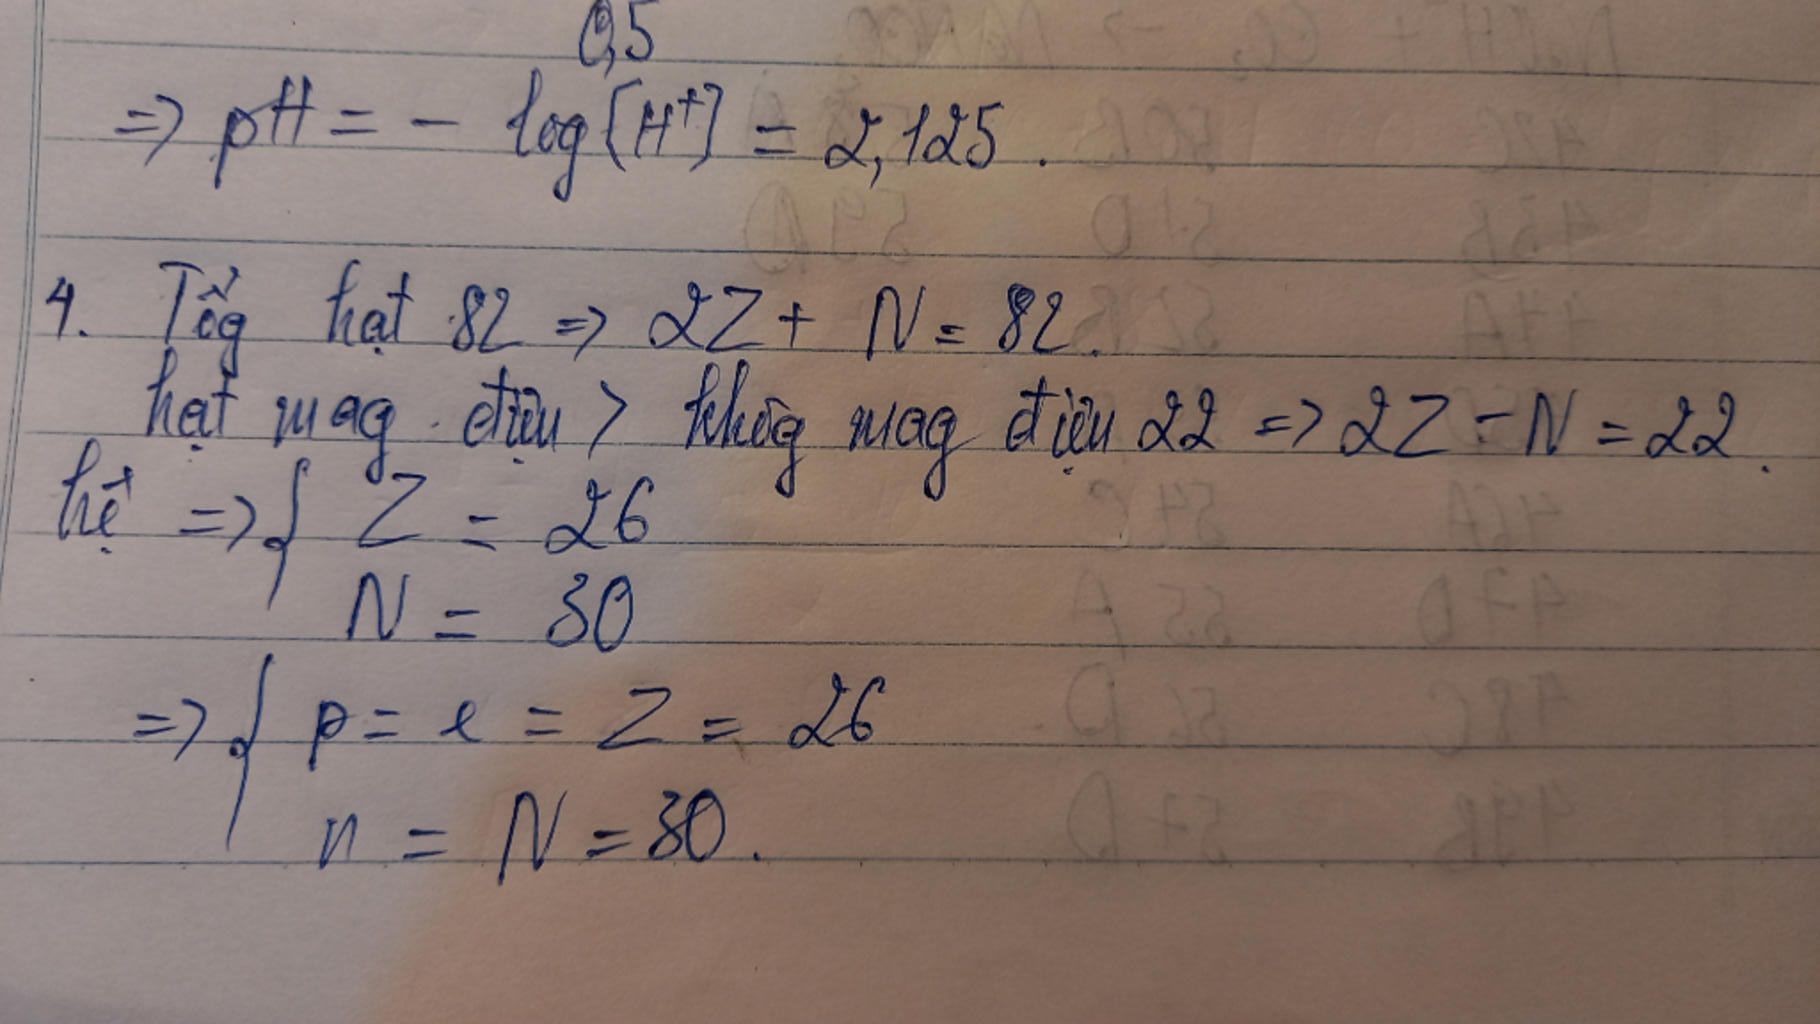 0,5
=> pH = - log[H+] = 2,125.
4. Tổg hạt 82 => 2Z + N = 82.
hạt mag điện > khôg mag điện 22 => 2Z - N = 22.
hệ => { Z = 26
N = 30
=> { p = e = Z = 26
n = N = 30.